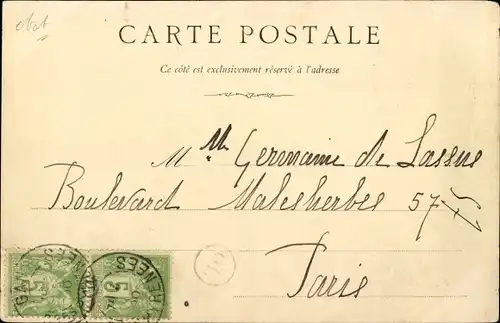 état
CARTE POSTALE
Ce côté est exclusivement réservé à l'adresse
M. M. Germaine de Lassus
Boulevard Malesherbes 57
Paris
5 5